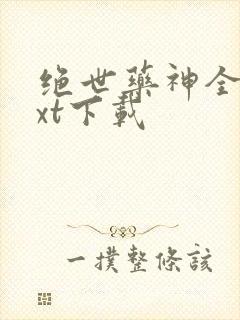 绝世藥神全
xt下載
一撲整條該